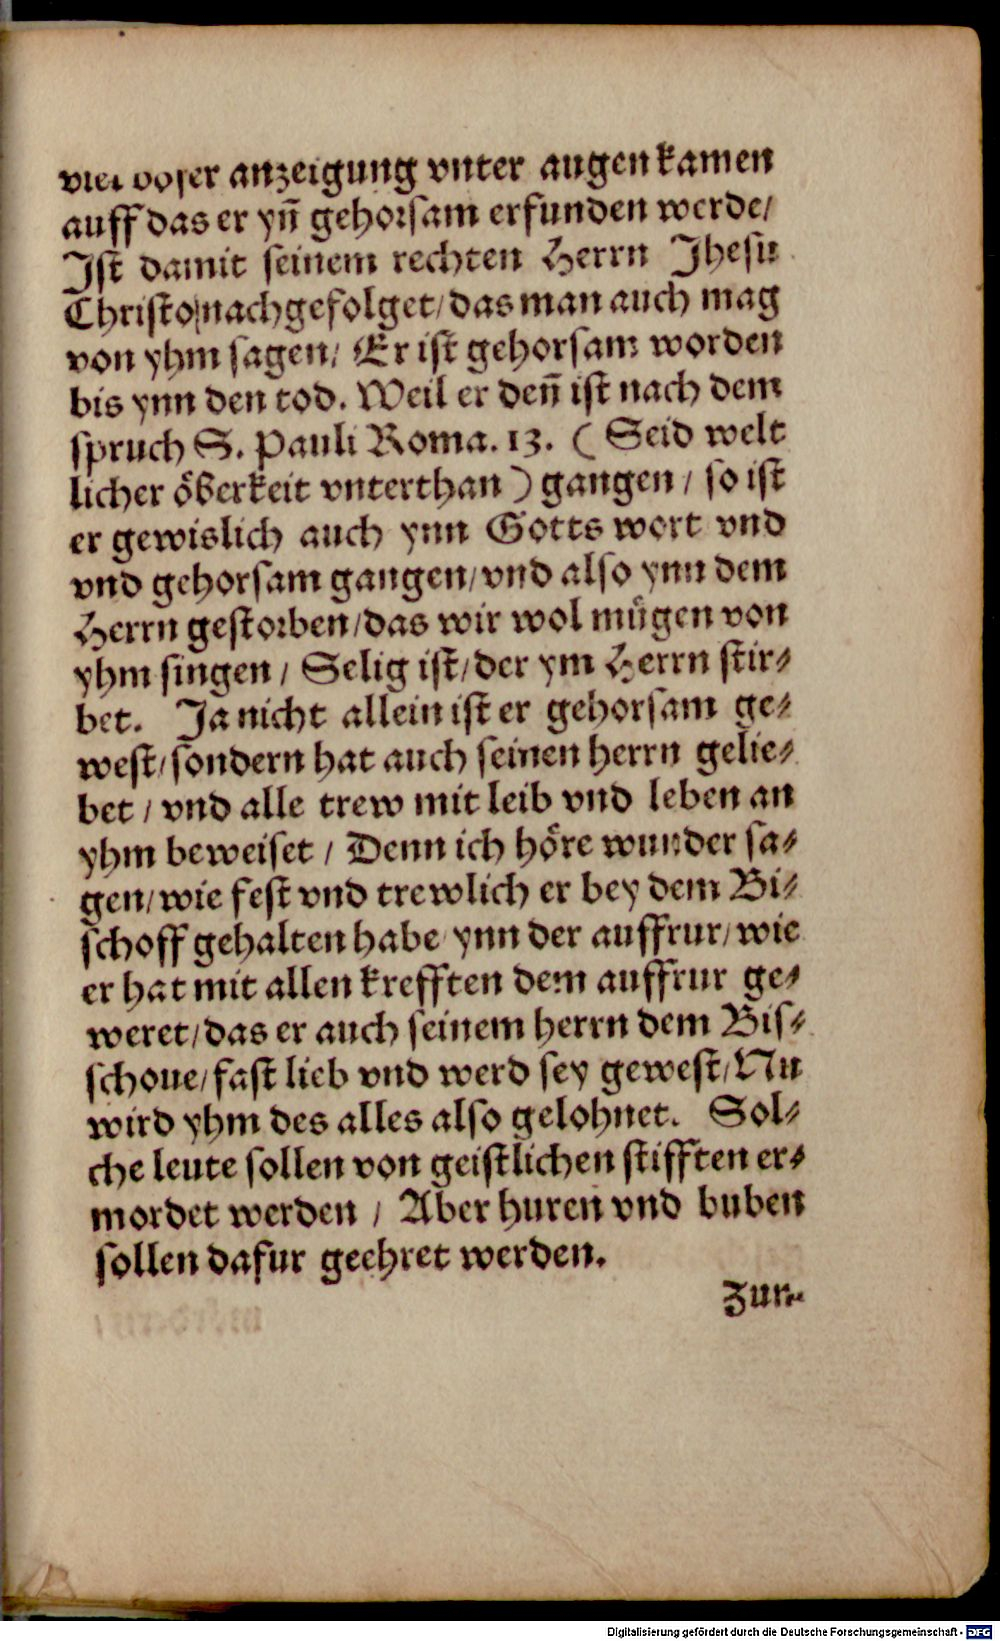 viel böser anzeigung vnter augen kamen
auff das er yñ gehorsam erfunden werde/
Ist damit seinem rechten Herrn Jhesu
Christo/nachgefolget/das man auch mag
von yhm sagen/ Er ist gehorsam worden
bis ynn den tod. Weil er deñ ist nach dem
spruch S. Pauli Roma. 13. ( Seid welt
licher öberkeit vnterthan ) gangen / so ist
er gewislich auch ynn Gotts wort vnd
vnd gehorsam gangen/vnd also ynn dem
Herrn gestorben/das wir wol mügen von
yhm singen / Selig ist/der ym Herrn stir⸗
bet. Ja nicht allein ist er gehorsam ge⸗
west/sondern hat auch seinen herrn gelie⸗
bet / vnd alle trew mit leib vnd leben an
yhm beweiset / Denn ich höre wunder sa⸗
gen/wie fest vnd trewlich er bey dem Bi⸗
schoff gehalten habe ynn der auffrur/wie
er hat mit allen krefften dem auffrur ge⸗
weret/das er auch seinem herrn dem Bis⸗
schoue/fast lieb vnd werd sey gewest/Nu
wird yhm des alles also gelohnet. Sol⸗
che leute sollen von geistlichen stifften er⸗
mordet werden / Aber huren vnd buben
sollen dafur geehret werden.
Zur
Digitalisierung gefördert durch die Deutsche Forschungsgemeinschaft - DFG